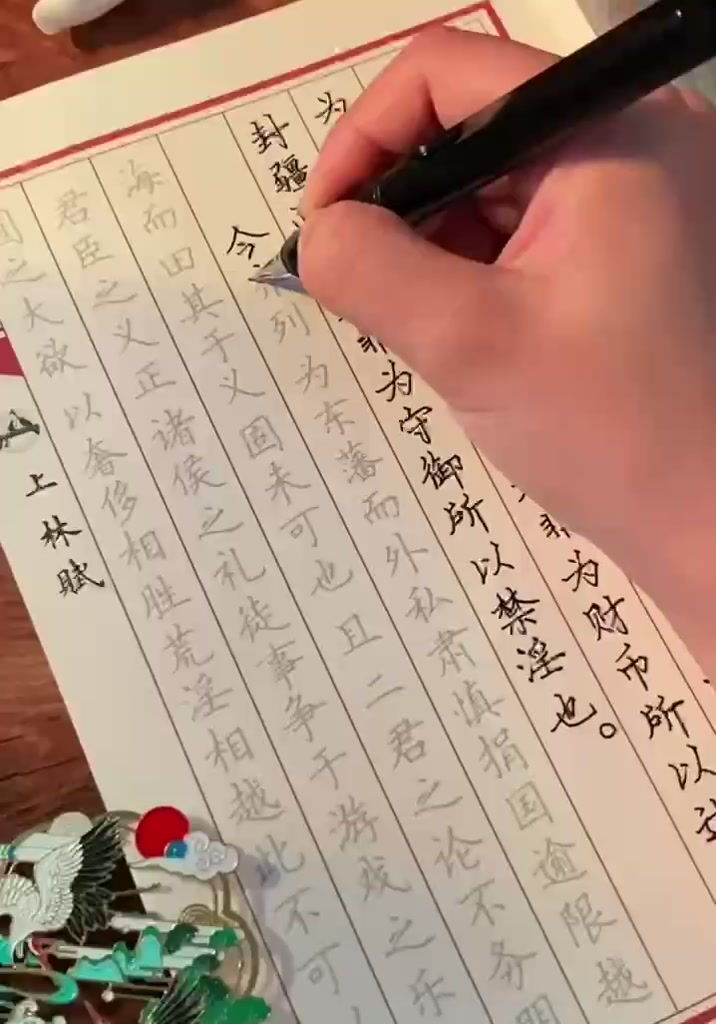 为
为财币所以
封疆
为守御所以禁淫也。
今齐列为东藩而外私肃慎捐国逾限越
海而田其于义固未可也且二君之论不务明
君臣之义正诸侯之礼徒事争于游戏之乐
之大欲以奢侈相胜荒淫相越此不可
上林赋